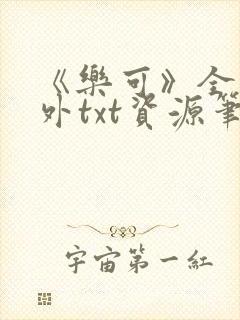 《樂可》全
外txt資源筆
宇宙第一紅